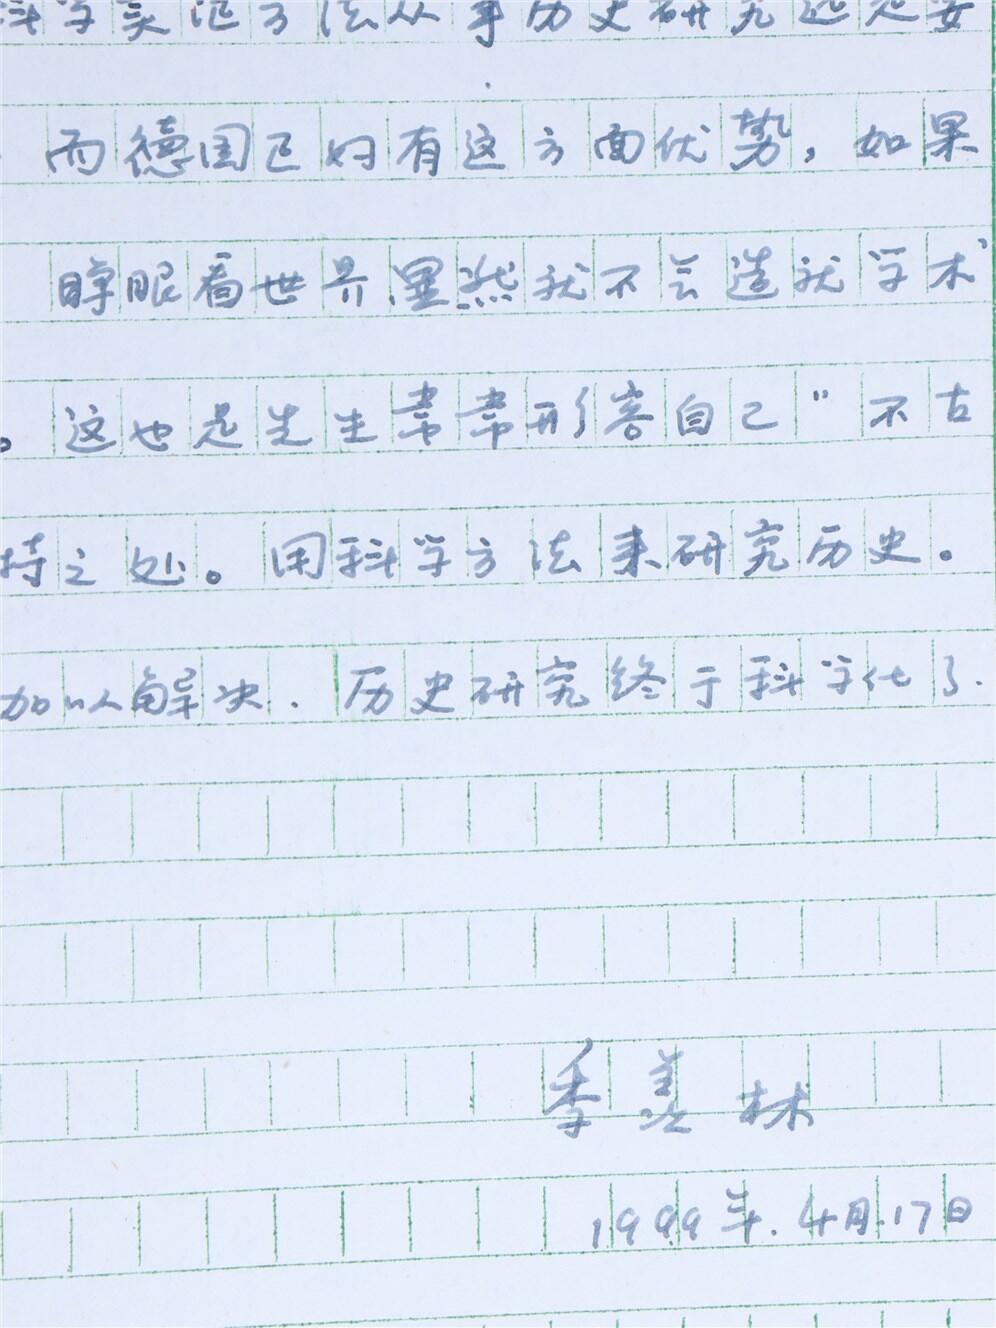 科学实证方法从事历史研究还是要
而德国正好有这方面优势,如果
睁眼看世界,显然就不会造就学术
。这也是先生常常形容自己"不古
特之处。用科学方法来研究历史。
加以解决.历史研究终于科学化了.
季羡林
1999年.4月.17日